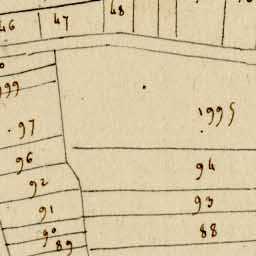 46 47 48
99
1995
97
96
94
92
93
91
88
90
89